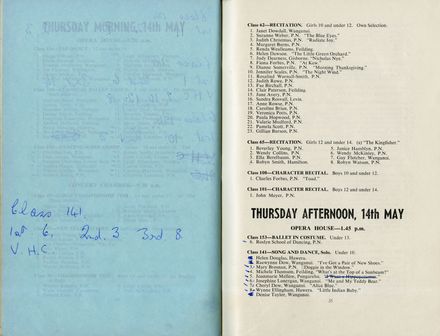 Class 141.
1st 6. 2nd. 3 3rd 8.
V.H.C.
Class 62—RECITATION. Girls 10 and under 12. Own Selection.
1. Janet Dowdall, Wanganui.
2. Suzanne Weber, P.N. "The Blue Eyes."
3. Judith Christmas, P.N. "Radiate Joy."
4. Margaret Burns, P.N.
5. Renda Weelleans, Feilding.
6. Helen Dawson. "The Little Green Orchard."
7. Judy Dearness, Gisborne. "Nicholas Nye."
8. Fiona Forbes, P.N. "At Kew."
9. Dianne Somerville, P.N. "Morning Thanksgiving."
10. Jennifer Scales, P.N. "The Night Wind."
11. Rosalind Warwall-Smith, P.N.
12. Judith Rowe, P.N.
13. Fae Birchall, P.N.
14. Clair Paterson, Feilding.
15. Jane Avery, P.N.
16. Sandra Rosvall, Levin.
17. Anne Rowse, P.N.
18. Caroline Brian, P.N.
19. Veronica Potts, P.N.
20. Paula Hopwood, P.N.
21. Valerie Mudford, P.N.
22. Pamela Scott, P.N.
23. Gillian Burson, P.N.
Class 65—RECITATION. Girls 12 and under 14. (a) "The Kingfisher."
1. Beverley Young, P.N. 5. Janice Hamblyn, P.N.
2. Wendy Collins, P.N. 6. Wendy McKinley, P.N.
3. Ella Berelbaum, P.N. 7. Gay Fletcher, Wanganui.
4. Robyn Smith, Hamilton. 8. Robyn Watson, P.N.
Class 100—CHARACTER RECITAL. Boys 10 and under 12.
1. Charles Forbes, P.N. "Toad."
Class 101—CHARACTER RECITAL. Boys 12 and under 14.
1. John Meyer, P.N.
THURSDAY AFTERNOON, 14th MAY
OPERA HOUSE—1.45 p.m.
Class 153—BALLET IN COSTUME. Under 13.
Roslyn School of Dancing, P.N.
Class 141—SONG AND DANCE, Solo. Under 10.
Helen Douglas, Hawera.
Raewynne Dow, Wanganui. "I've Got a Pair of New Shoes."
Mary Brunton, P.N. "Doggie in the Window."
Michele Thomson, Feilding. "What's at the Top of a Sunbeam?"
Jeannmarie Mellow, Pungarehu.
Josephine Lonergan, Wanganui. "Me and My Teddy Bear."
Cheryl Dow, Wanganui. "Alice Blue."
Wynne Ellingham, Hawera. "Little Indian Baby."
Denise Taylor, Wanganui.
35